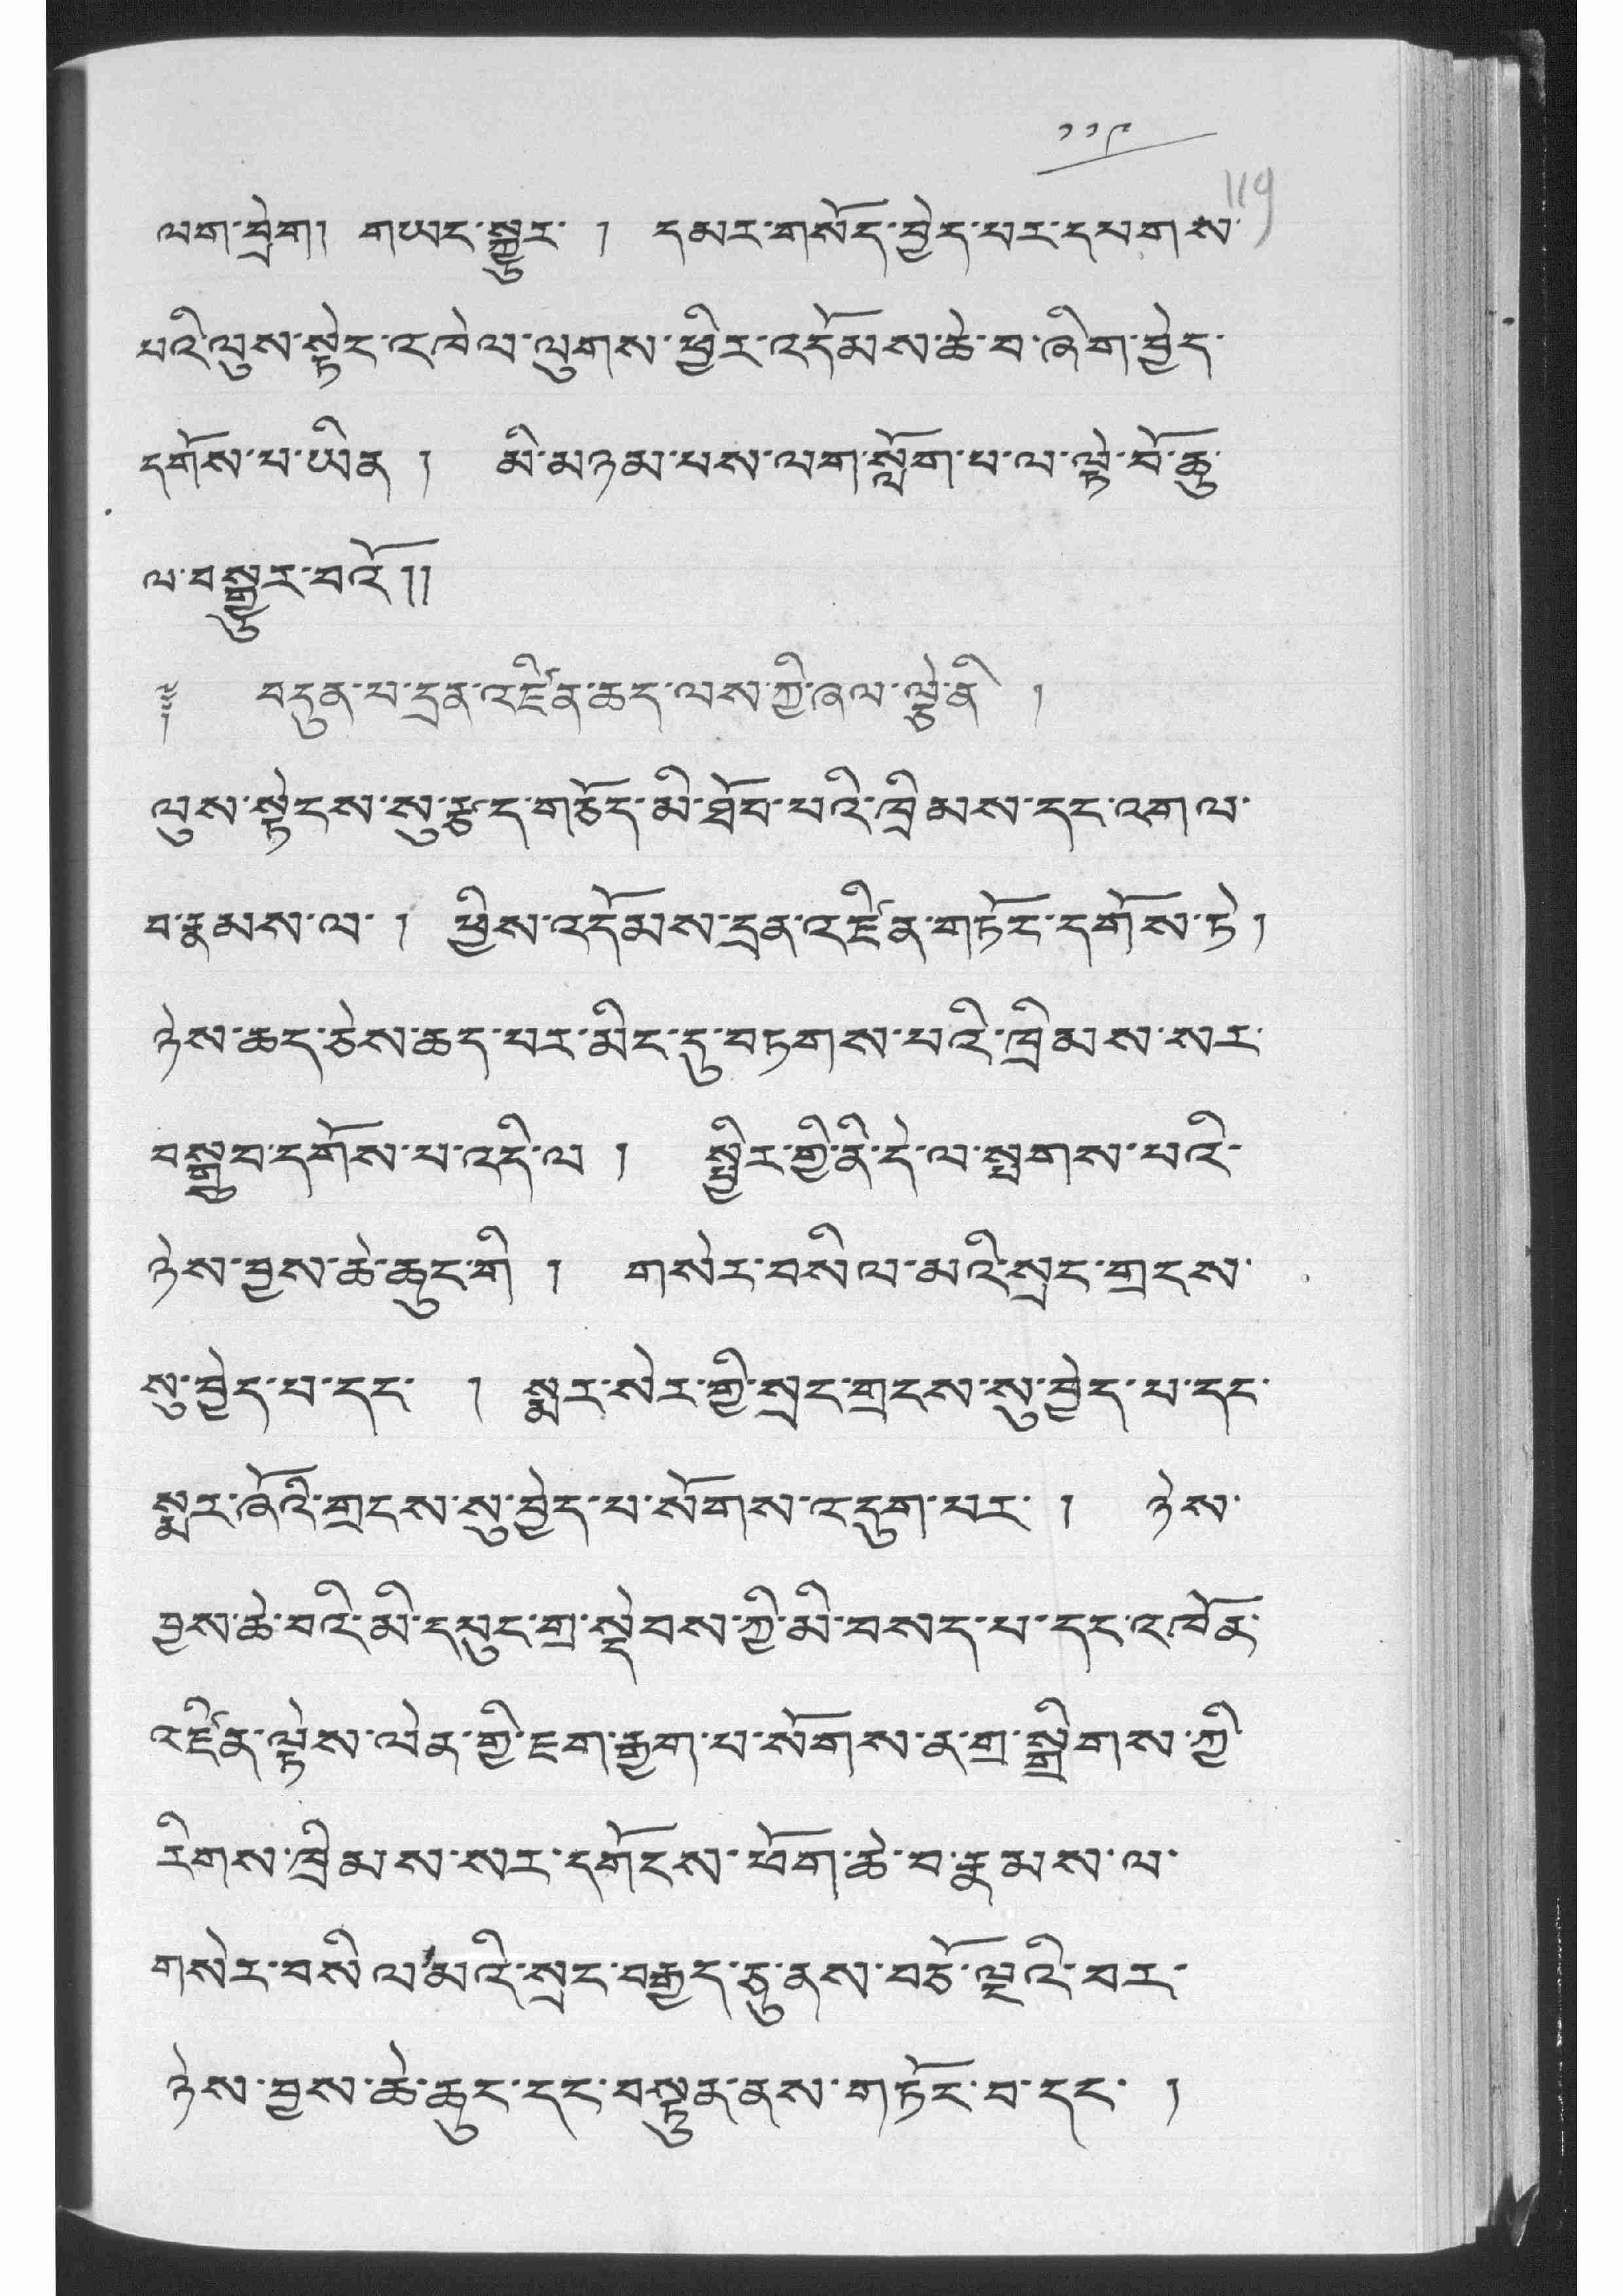 ༡༡༩
119
ལག་བྲེག། གཡང་སྐྱུར་ ། དམར་གསོད་བྱེད་པར་དཔགས་
པའི་ལུས་སྟེང་འཁེལ་ལུགས་ཕྱིར་འདོམས་ཆེ་བ་ཞིག་བྱེད་
དགོས་པ་ཡིན ། མི་མཉམ་པས་ལག་སློག་པ་ལ་ལྟེ་བོ་ཆུ་
ལ་བསྐྱུར་བའོ།།
༈ བདུན་པ་དྲན་འཛིན་ཆད་ལས་ཀྱི་ཞལ་ལྕེ་ནི །
ལུས་སྟེངས་སུ་རྩད་གཅོད་མི་ཐོབ་པའི་ཁྲིམས་དང་འགལ་
བ་རྣམས་ལ་ ། ཕྱིས་འདོམས་དྲན་འཛིན་གཏོང་དགོས་ཏེ །
ཉེས་ཆད་ཅེས་ཆད་པར་མིང་དུ་བཏགས་པའི་ཁྲིམས་སར་
བསྒྲུབ་དགོས་པ་འདི་ལ ། སྤྱིར་གྱི་ནི་དེ་ལ་སྤགས་པའི་
ཉེས་བྱས་ཆེ་ཆུང་གི ། གསེར་བསིལ་མའི་སྲང་གྲངས་
སུ་བྱེད་པ་དང་ ། སྨར་སེར་གྱི་སྲང་གྲངས་སུ་བྱེད་པ་དང་
སྨར་ཞོའི་གྲངས་སུ་བྱེད་པ་སོགས་འདུག་པར་ ། ཉེས་
བྱས་ཆེ་བའི་མི་དཔུང་གྲ་སྡེབས་ཀྱི་མི་བསད་པ་དང་འཁོན་
འཛིན་ལྟེས་ལེན་གྱི་ཇག་རྒྱག་པ་སོགས་ན་གྲ་སྒྲིགས་ཀྱི
རིགས་ཁྲིམས་སར་དགོངས་ཕོག་ཆེ་བ་རྣམས་ལ་
གསེར་བསིལ་མའི་སྲང་བརྒྱད་ཅུ་ནས་བཅོ་ལྔའི་བར་
ཉེས་བྱས་ཆེ་ཆུང་དང་བསྟུན་ནས་གཏོང་བ་དང་ །